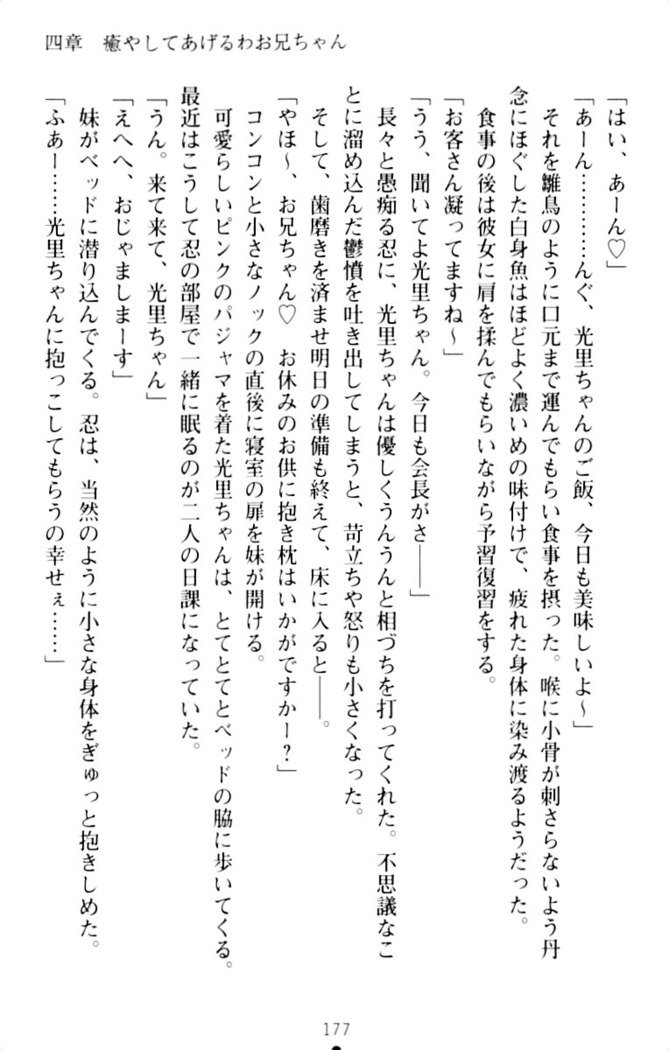 四章　癒やしてあげるわお兄ちゃん
「はい、あーん♡」
「あーん…………んぐ、光里ちゃんのご飯、今日も美味しいよ～」
それを雛鳥のように口元まで運んでもらい食事を摂った。喉に小骨が刺さらないよう丹
念にほぐした白身魚はほどよく濃いめの味付けで、疲れた身体に染み渡るようだった。
食事の後は彼女に肩を揉んでもらいながら予習復習をする。
「お客さん凝ってますね～」
「うう、聞いてよ光里ちゃん。今日も会長がさ――」
長々と愚痴る忍に、光里ちゃんは優しくうんうんと相づちを打ってくれた。不思議なこ
とに溜め込んだ鬱憤を吐き出してしまうと、苛立ちや怒りも小さくなった。
そして、歯磨きを済ませ明日の準備も終えて、床に入ると――。
「やほ～、お兄ちゃん♡　お休みのお供に抱き枕はいかがですかー？」
コンコンと小さなノックの直後に寝室の扉を妹が開ける。
可愛らしいピンクのパジャマを着た光里ちゃんは、とてとてとベッドの脇に歩いてくる。
最近はこうして忍の部屋で一緒に眠るのが二人の日課になっていた。
「うん。来て来て、光里ちゃん」
「えへへ、おじゃましまーす」
妹がベッドに潜り込んでくる。忍は、当然のように小さな身体をぎゅっと抱きしめた。
「ふあー……光里ちゃんに抱っこしてもらうの幸せぇ……」
177